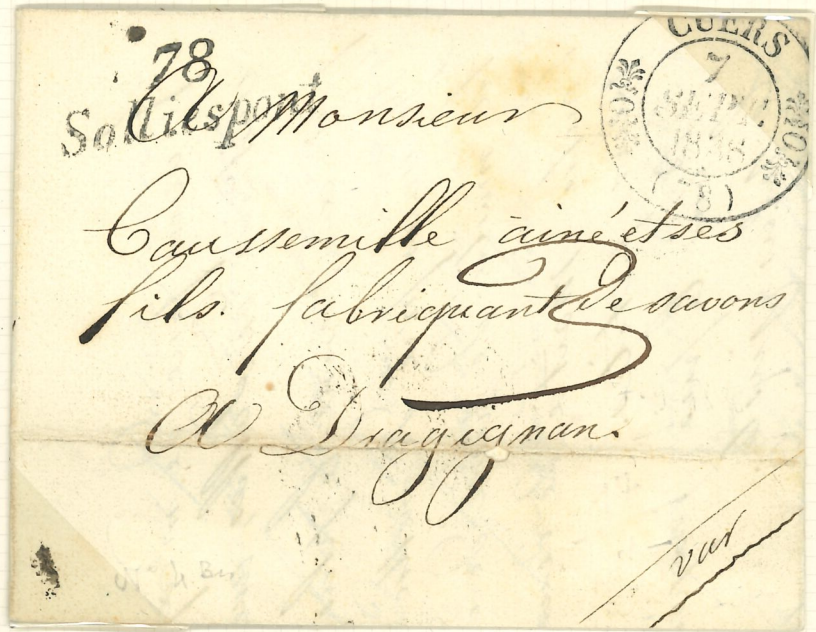 78
Solliespont
CUERS
7
SEPT
1838
(78)
A Monsieur
Caussemille ainé et ses
fils. fabriquant de savons
3
A Dragignan.
var